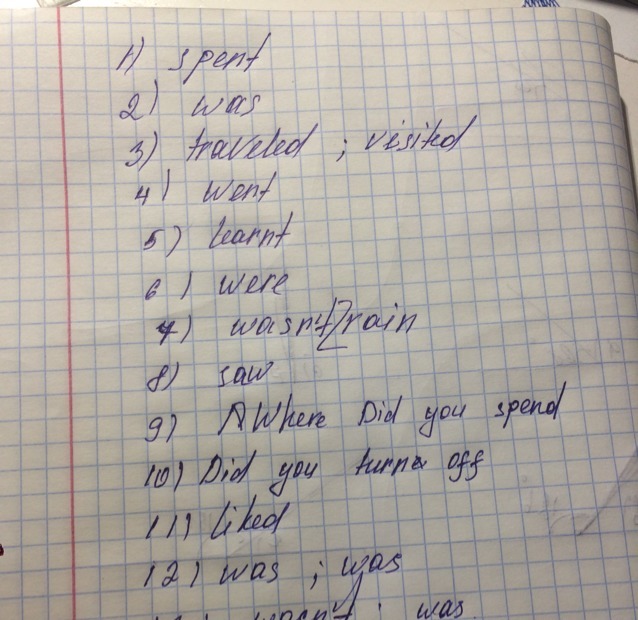 1) spent
2) was
3) traveled ; visited
4) went
5) learnt
6) were
7) wasn't rain
8) saw
9) Where Did you spend
10) Did you turn off
11) liked
12) was ; was
wasn't ; was